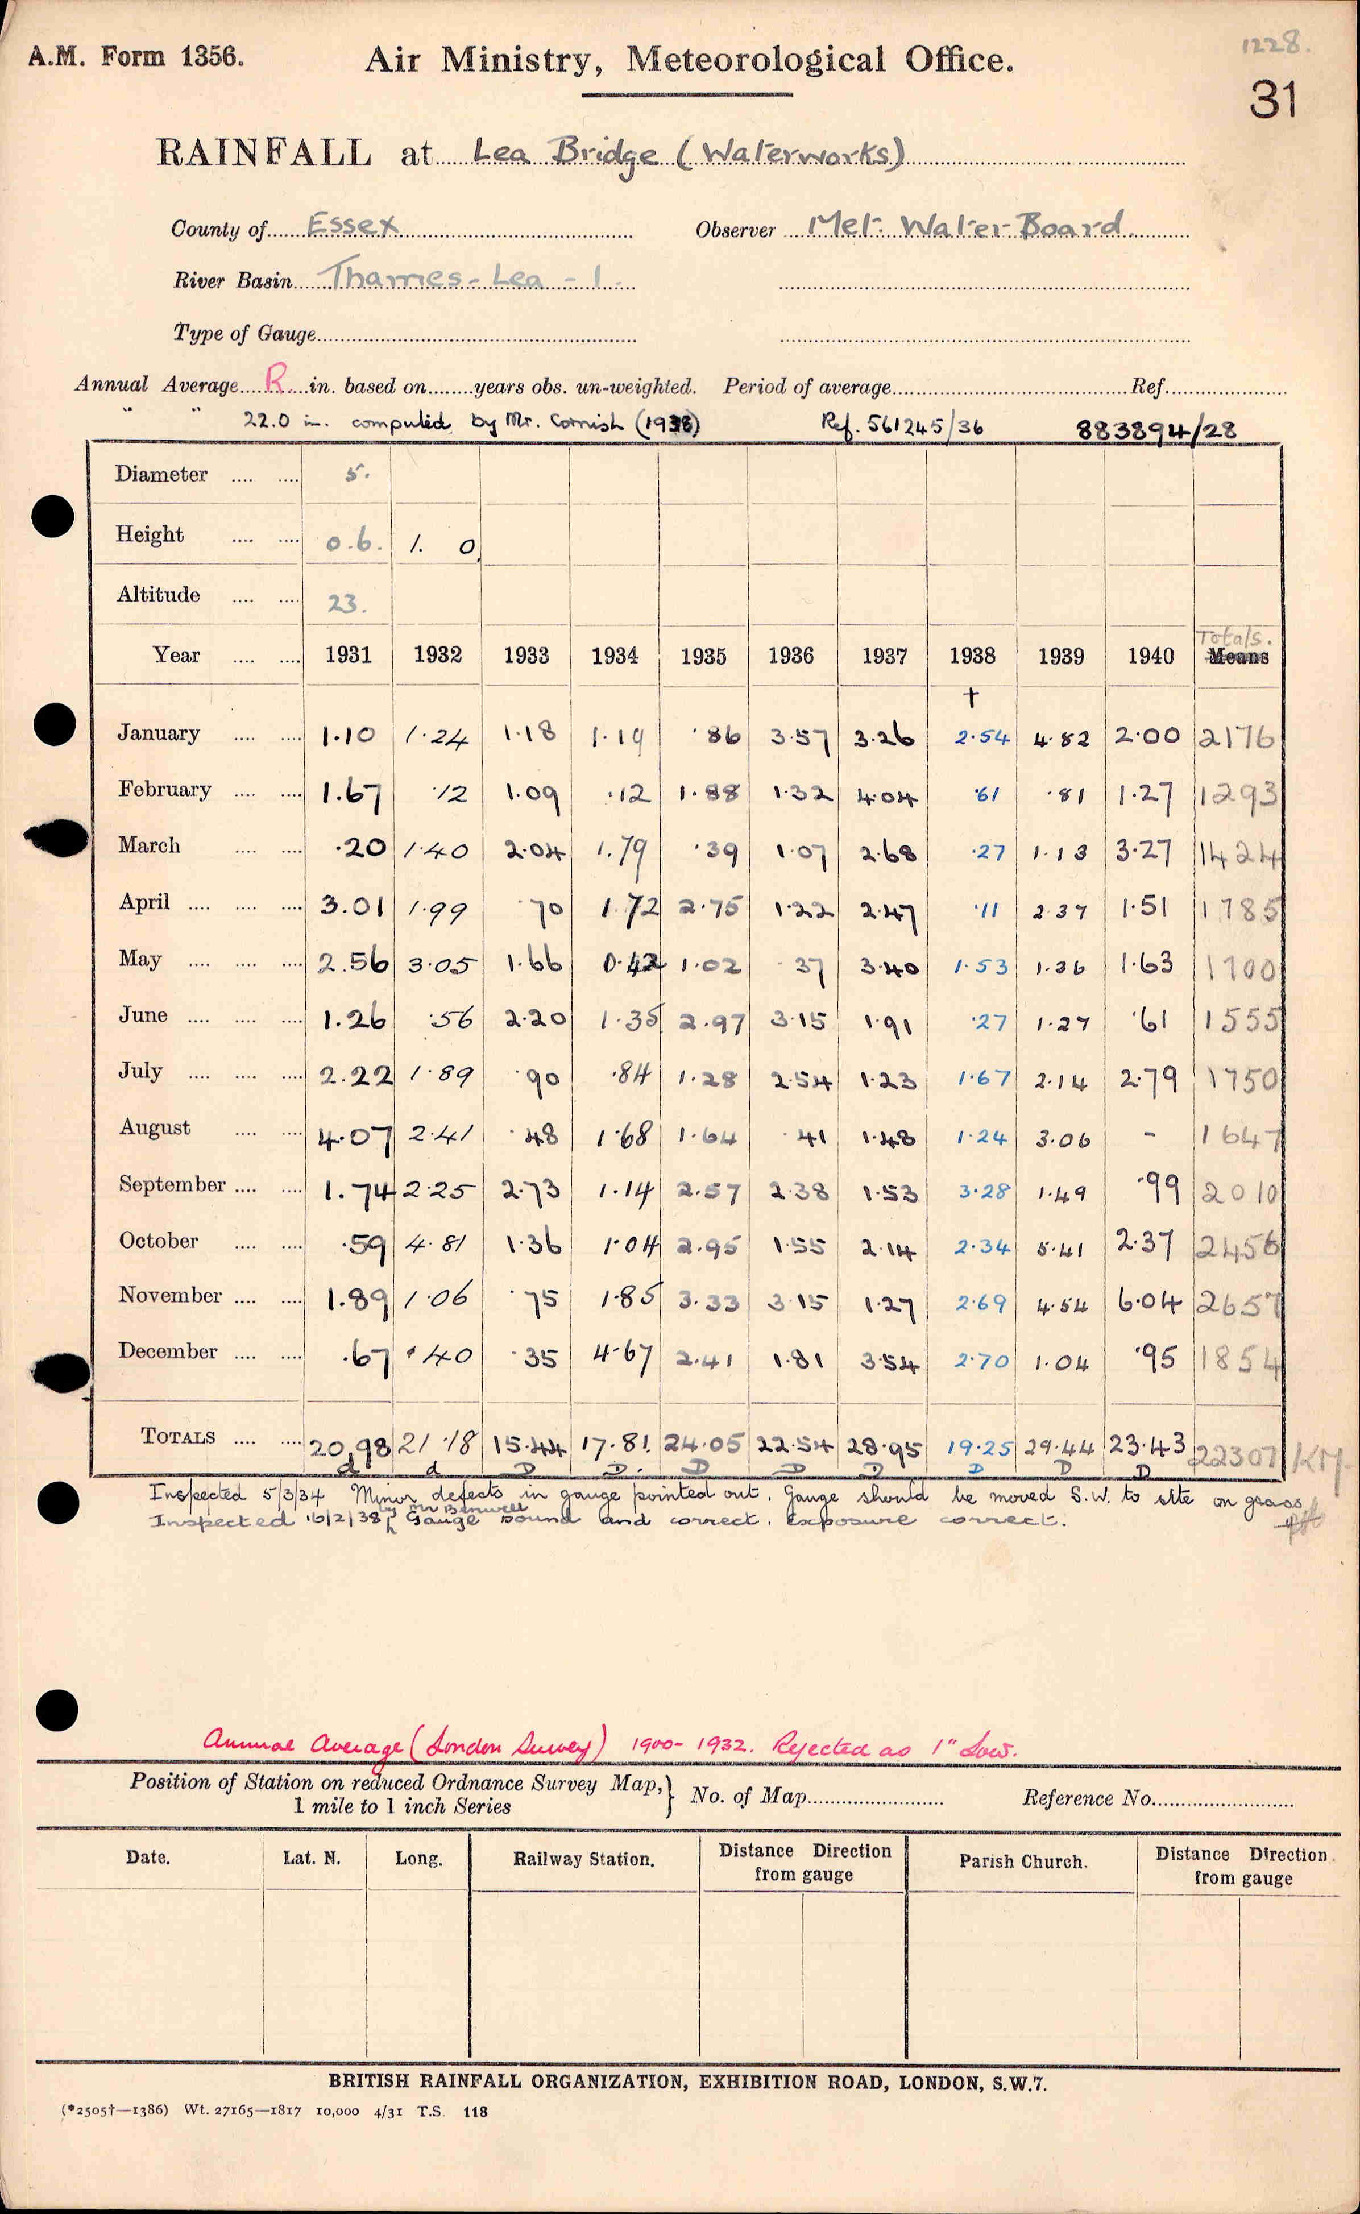 A.M. Form 1356.
Air Ministry, Meteorological Office.
1228.
31
RAINFALL at Lea Bridge (Waterworks)
County of Essex Observer Met. Water Board
River Basin Thames - Lea - 1.
Type of Gauge
Annual Average R in. based on years obs. un-weighted. Period of average Ref.
" " 22.0 in. computed by Mr. Cornish (1938) Ref. 561245/36 883894/28
Diameter 5.
Height 0.6. 1. 0.
Altitude 23.
Totals.
Year 1931 1932 1933 1934 1935 1936 1937 1938 1939 1940 Means
†
January 1.10 1.24 1.18 1.19 .86 3.57 3.26 2.54 4.82 2.00 2176
February 1.67 .12 1.09 .12 1.88 1.32 4.04 .61 .81 1.27 1293
March .20 1.40 2.04 1.79 .39 1.07 2.68 .27 1.13 3.27 1424
April 3.01 1.99 .70 1.72 2.75 1.22 2.47 .11 2.37 1.51 1785
May 2.56 3.05 1.66 0.42 1.02 .37 3.40 1.53 1.36 1.63 1700
June 1.26 .56 2.20 1.35 2.97 3.15 1.91 .27 1.27 .61 1555
July 2.22 1.89 .90 .84 1.28 2.54 1.23 1.67 2.14 2.79 1750
August 4.07 2.41 .48 1.68 1.64 .41 1.48 1.24 3.06 - 1647
September 1.74 2.25 2.73 1.14 2.57 2.38 1.53 3.28 1.49 .99 2010
October .59 4.81 1.36 1.04 2.95 1.55 2.14 2.34 5.41 2.37 2456
November 1.89 1.06 .75 1.85 3.33 3.15 1.27 2.69 4.54 6.04 2657
December .67 .40 .35 4.67 2.41 1.81 3.54 2.70 1.04 .95 1854
TOTALS 20.98 21.18 15.44 17.81. 24.05 22.54 28.95 19.25 29.44 23.43 22307 KM.
d d D D. D D D D D D
Inspected 5/3/34 Minor defects in gauge pointed out. Gauge should be moved S.W. to site on grass
by Mr Benwell
Inspected 16/2/38 Gauge sound and correct. Exposure correct.
Annual Average (London Survey) 1900-1932. Rejected as 1" Low.
Position of Station on reduced Ordnance Survey Map,} No. of Map Reference No.
1 mile to 1 inch Series
Date. Lat. N. Long. Railway Station. Distance Direction from gauge Parish Church. Distance Direction from gauge
BRITISH RAINFALL ORGANIZATION, EXHIBITION ROAD, LONDON, S.W.7.
(*2505†—1386) Wt. 27165—1817 10,000 4/31 T.S. 118